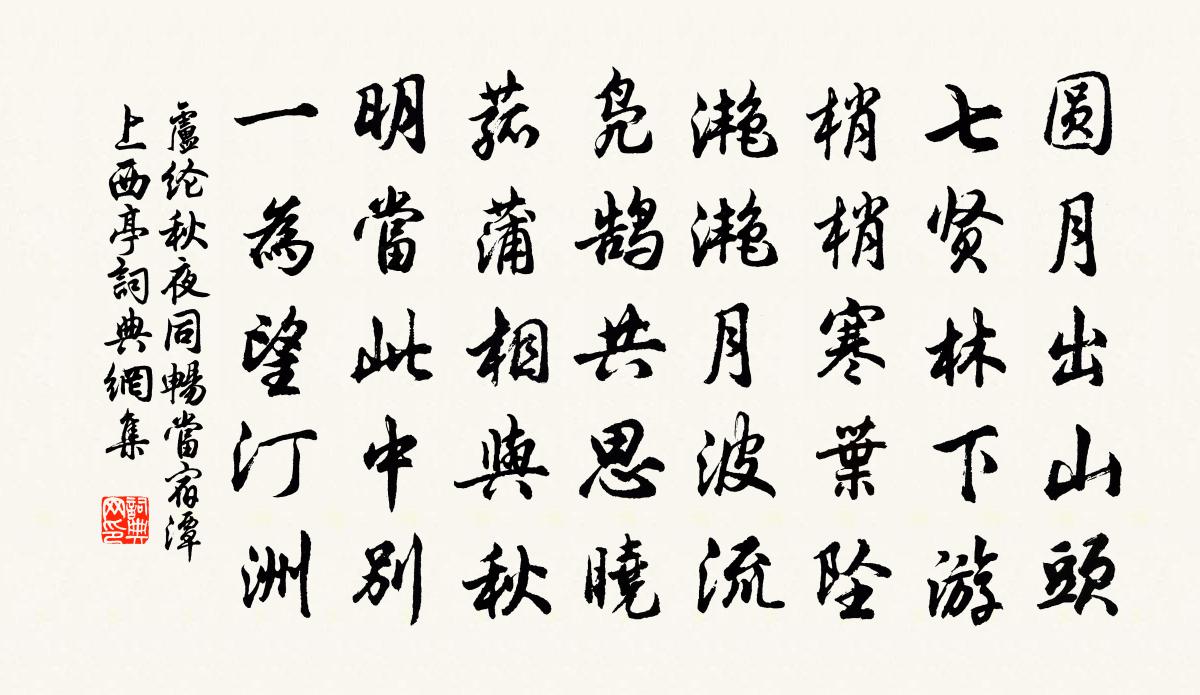 圆月出山頭
七贤林下游
梢梢寒葉坠
滟滟月波流
凫鹄共思曉
菰蒲相與秋
明當此中别
一為望汀洲
盧纶秋夜同暢當宿潭
上西亭詞典網集
詞典网印